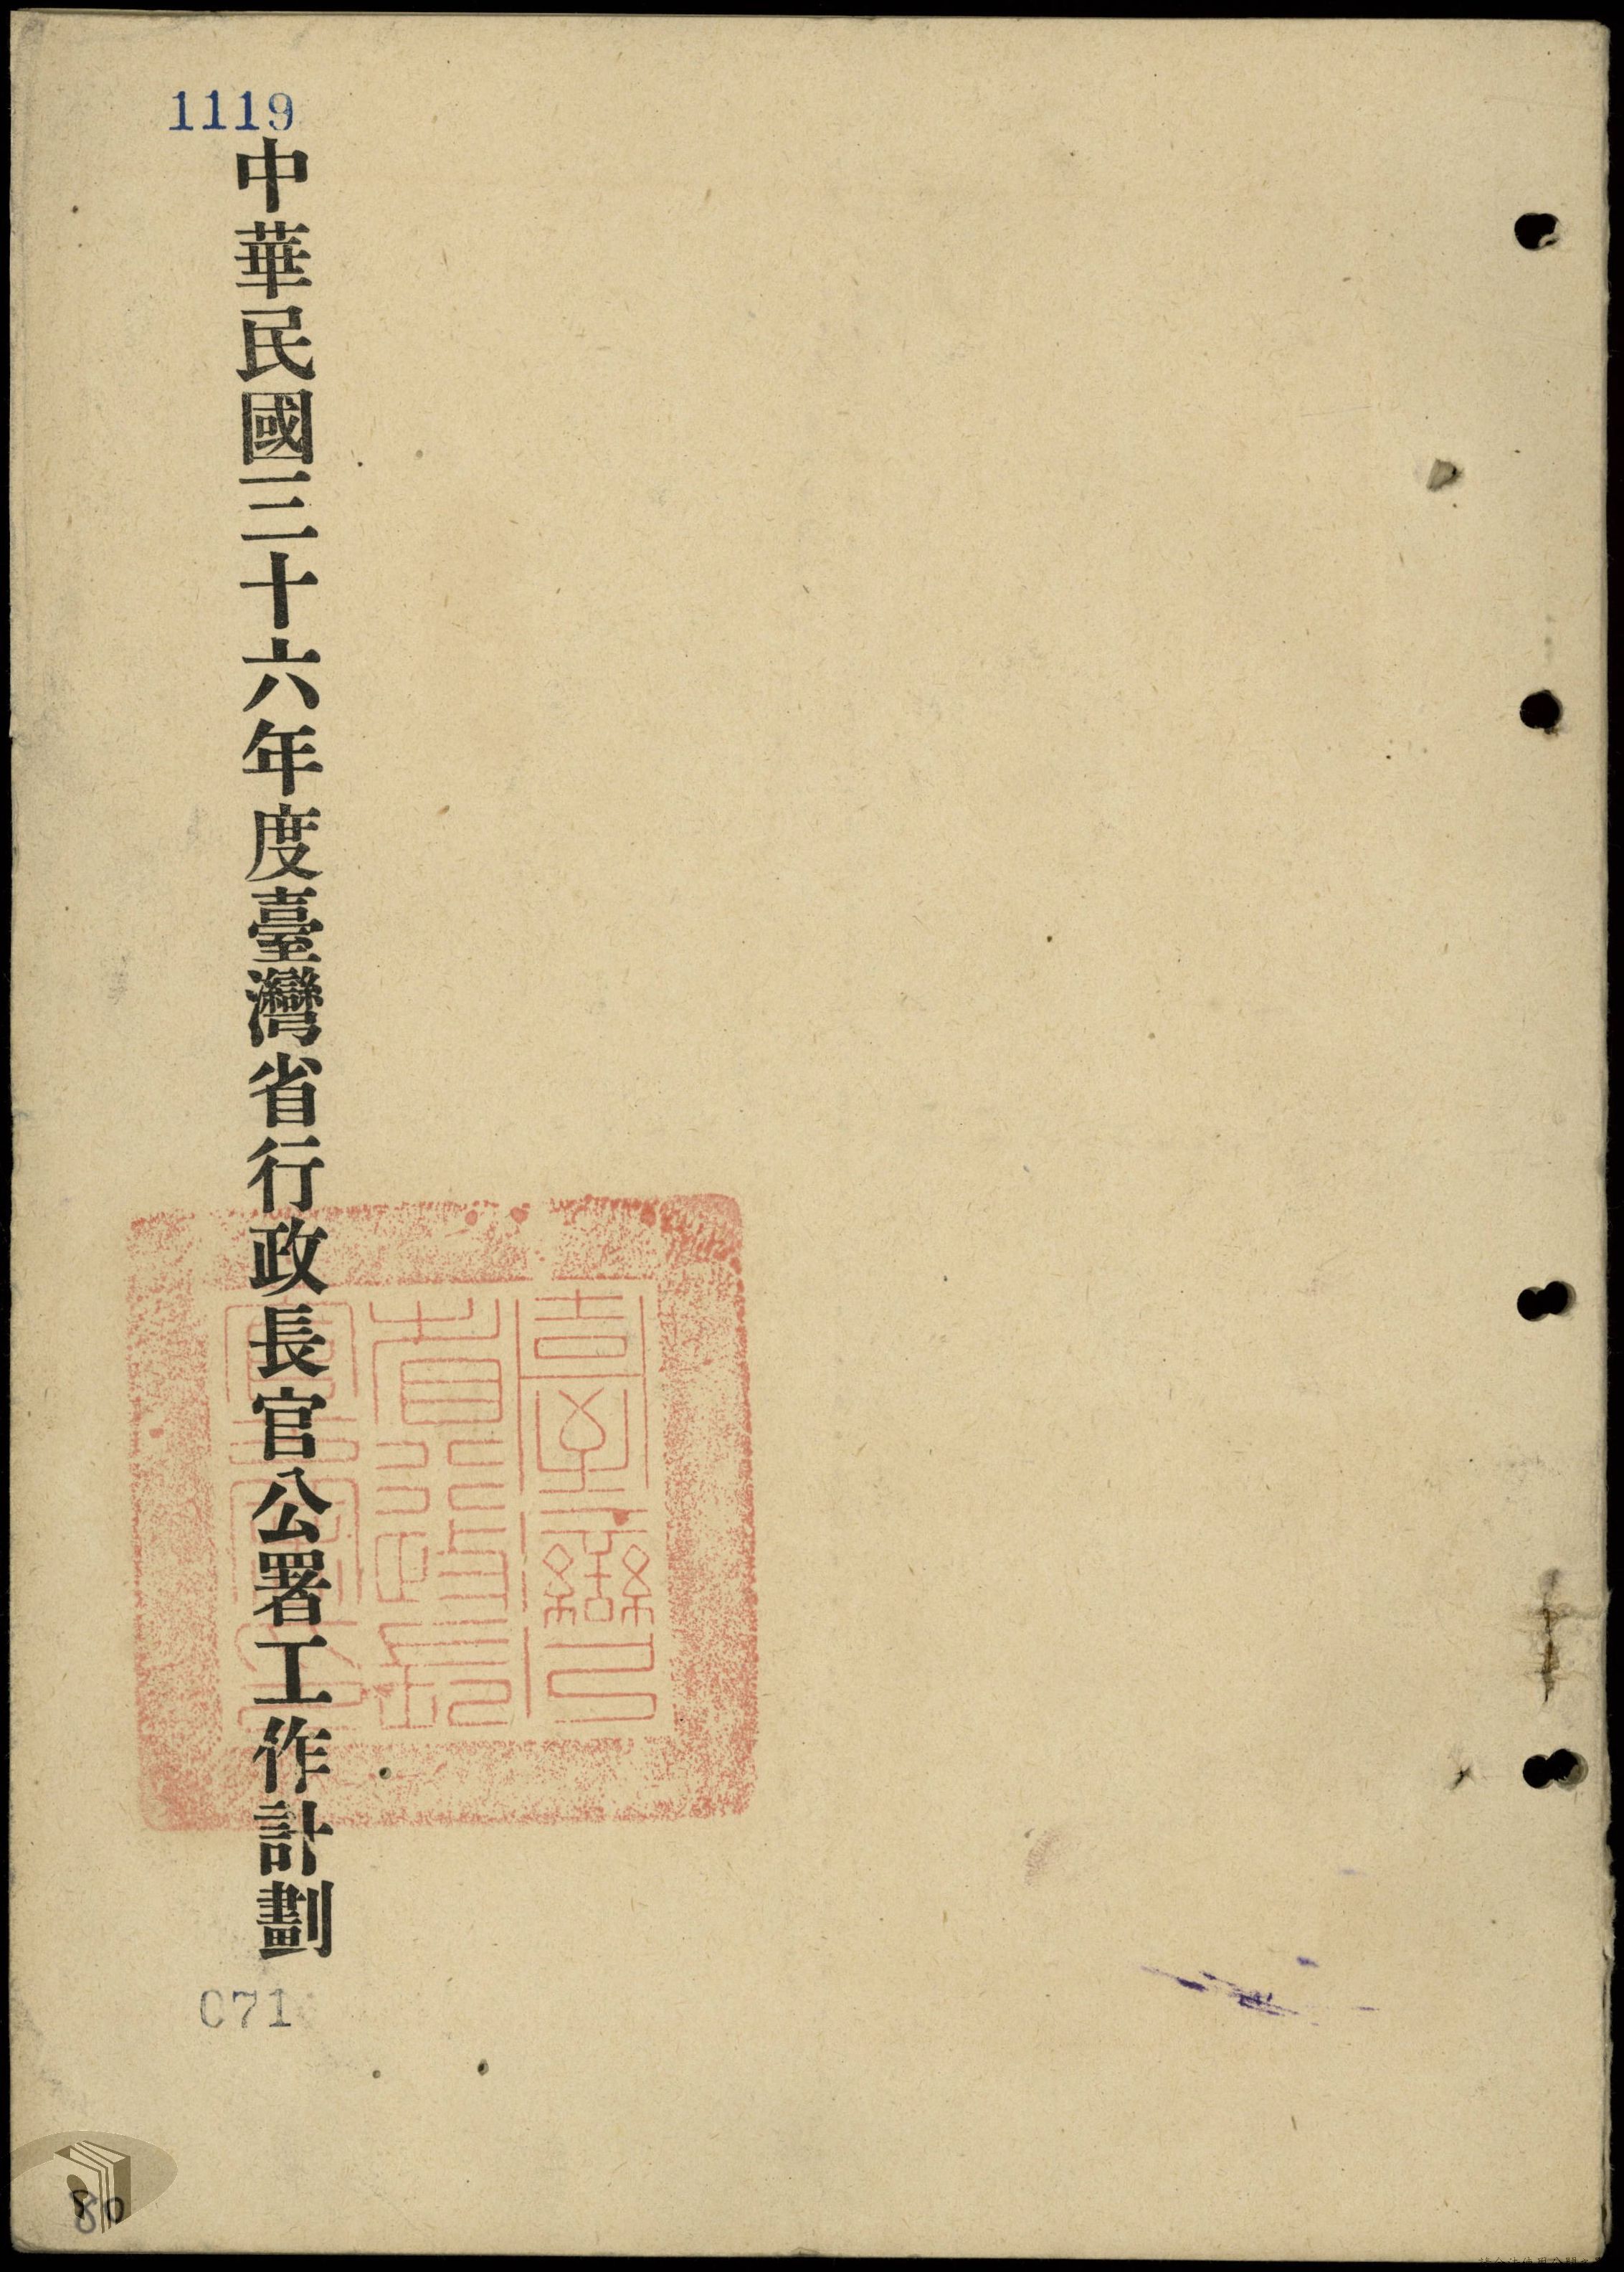 1119
中華民國三十六年度臺灣省行政長官公署工作計劃
臺灣
省行政長
C71
80